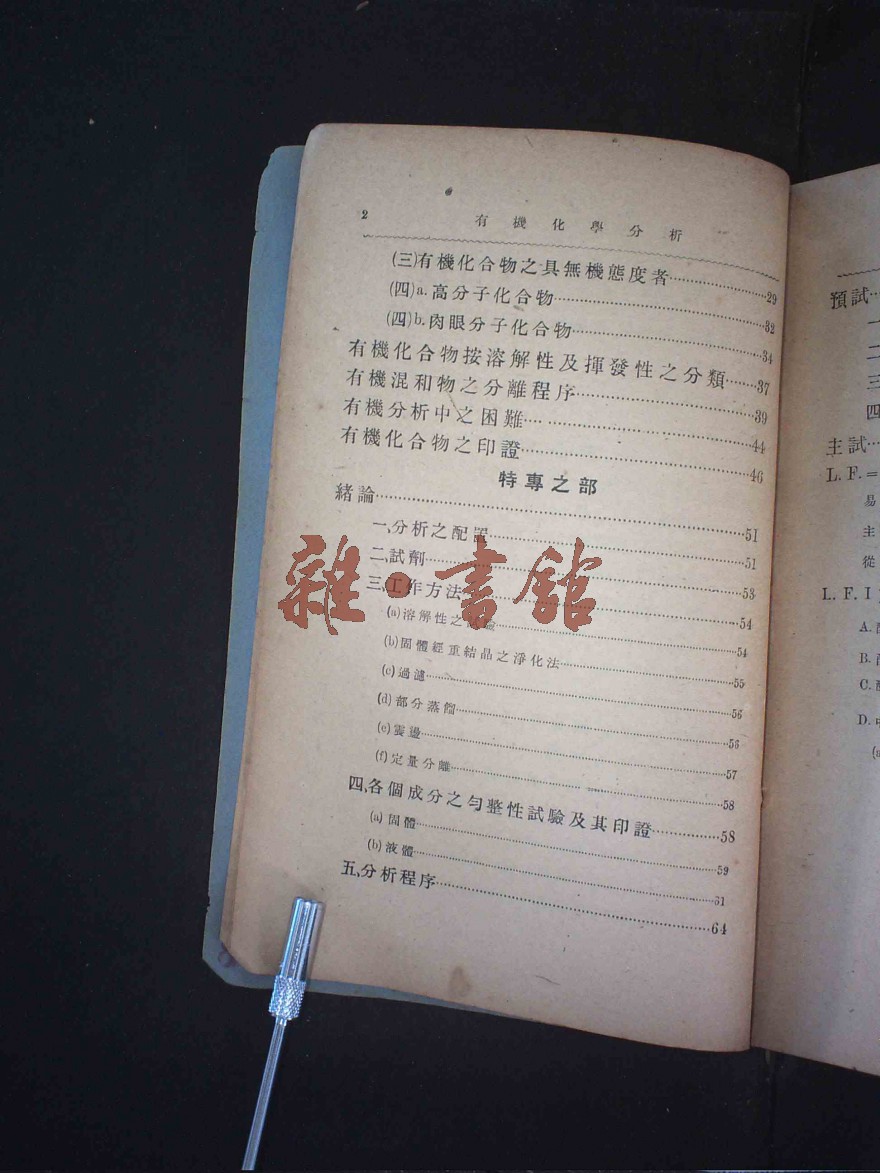 2 有機化學分析
(三)有機化合物之具無機態度者……29
(四)a.高分子化合物……32
(四)b.肉眼分子化合物……34
有機化合物按溶解性及揮發性之分類……37
有機混和物之分離程序……39
有機分析中之困難……44
有機化合物之印證……46
特專之部
緒論……51
一、分析之配置……51
二、試劑……53
三、工作方法……54
(a)溶解性之試驗……54
(b)固體經重結晶之淨化法……55
(c)過濾……56
(d)部分蒸餾……56
(e)……57
(f)定量分離……58
四、各個成分之勻整性試驗及其印證……58
(a)固體……59
(b)液體……61
五、分析程序……64
雜·書館
預試…
一
二
三
四
主試…
L. F. =
易
主
從
L. F. I
A.
B.
C.
D.